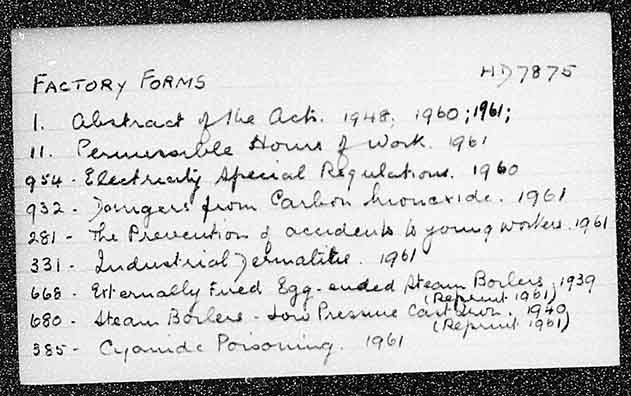 FACTORY FORMS HD7875
1. Abstract of the Act. 1948; 1960; 1961;
11. Permissible Hours of Work. 1961
954 - Electricity Special Regulations. 1960
932 - Dangers from Carbon Monoxide. 1961
281 - The Prevention of accidents to young workers. 1961
331 - Industrial Dermatitis. 1961
668 - Externally Fired Egg-ended Steam Boilers. 1939
(Reprint 1961)
680 - Steam Boilers - Low Pressure Cast Iron. 1940
(Reprint 1961)
385 - Cyanide Poisoning. 1961